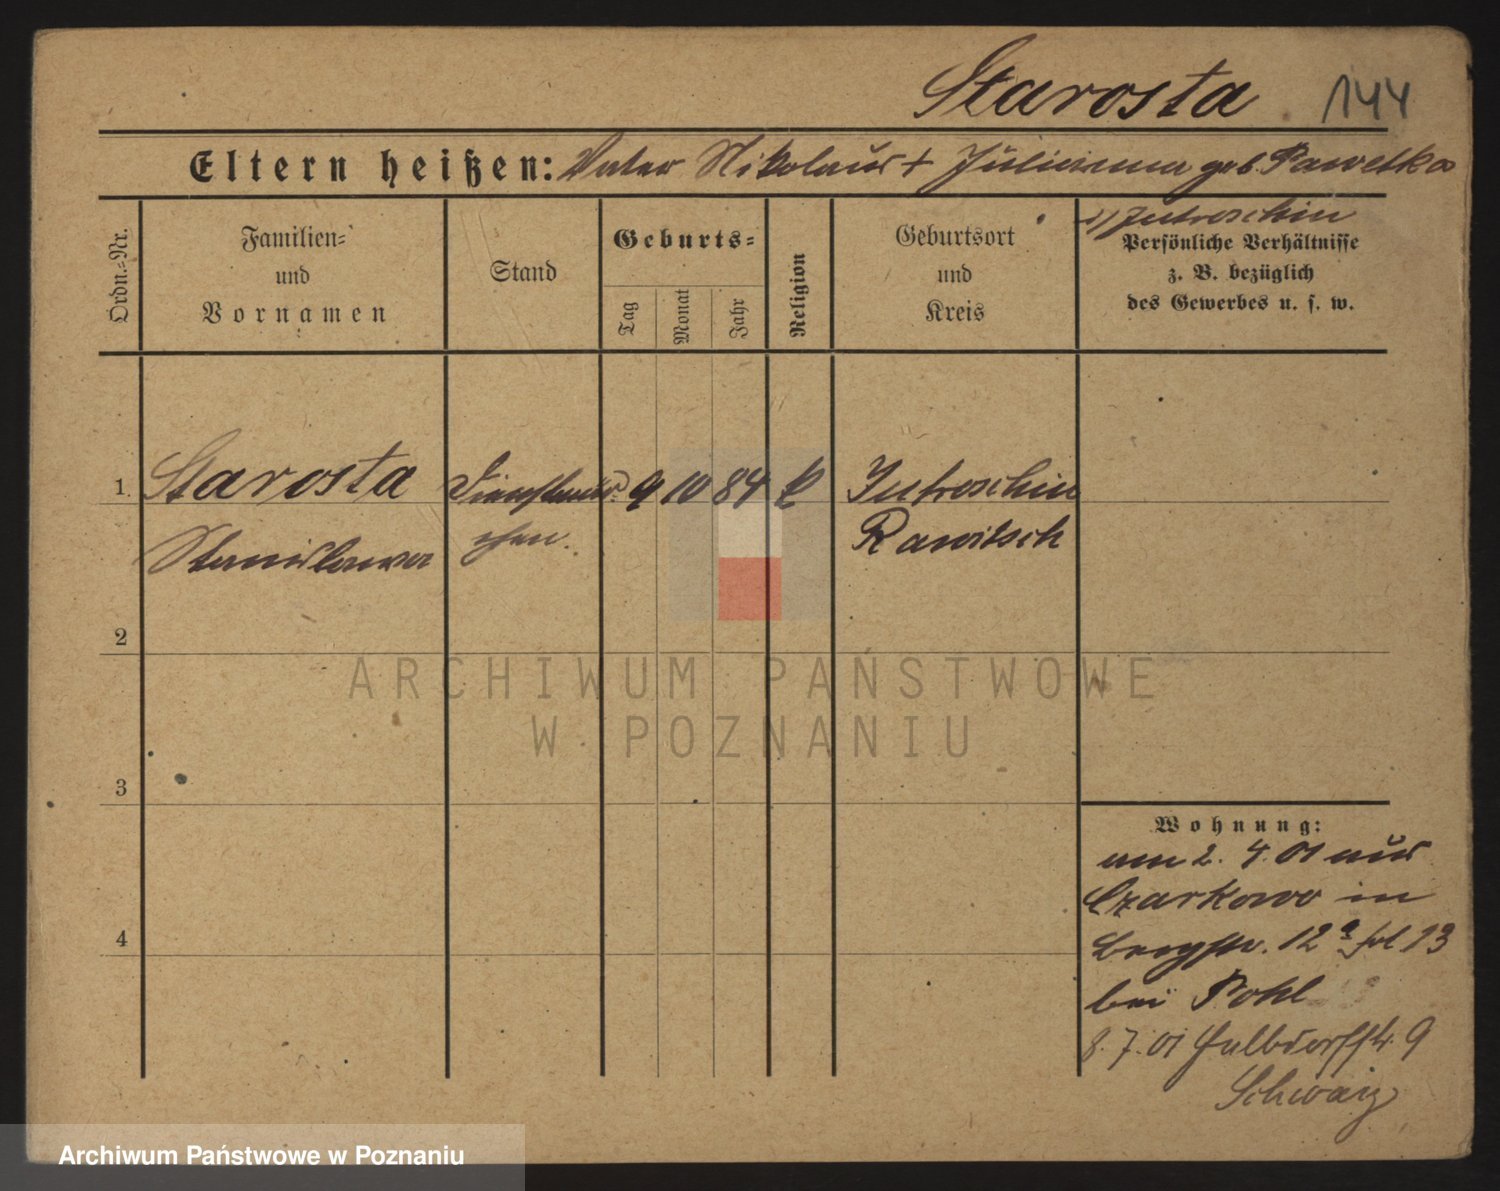 Starosta 144
Eltern heißen: Vater Nikolaus + Julianna geb. Pawelka
Jutroschin
Ordn.=Nr.
Familien=
und
Vornamen
Stand
Geburts=
Tag
Monat
Jahr
Religion
Geburtsort
und
Kreis
Persönliche Verhältnisse
z. B. bezüglich
des Gewerbes u. s. w.
1 Starosta Dienstmäd= 9 10 84 k Jutroschin
Stanislawa chen. Rawitsch
2
3
4
Wohnung:
am 2. 4. 01 aus
Czarkowo in
Bergstr. 12ª 13
bei Pohl
8. 7. 01 Halbdorfstr. 9
Schwaiz
ARCHIWUM PAŃSTWOWE
W POZNANIU
Archiwum Państwowe w Poznaniu